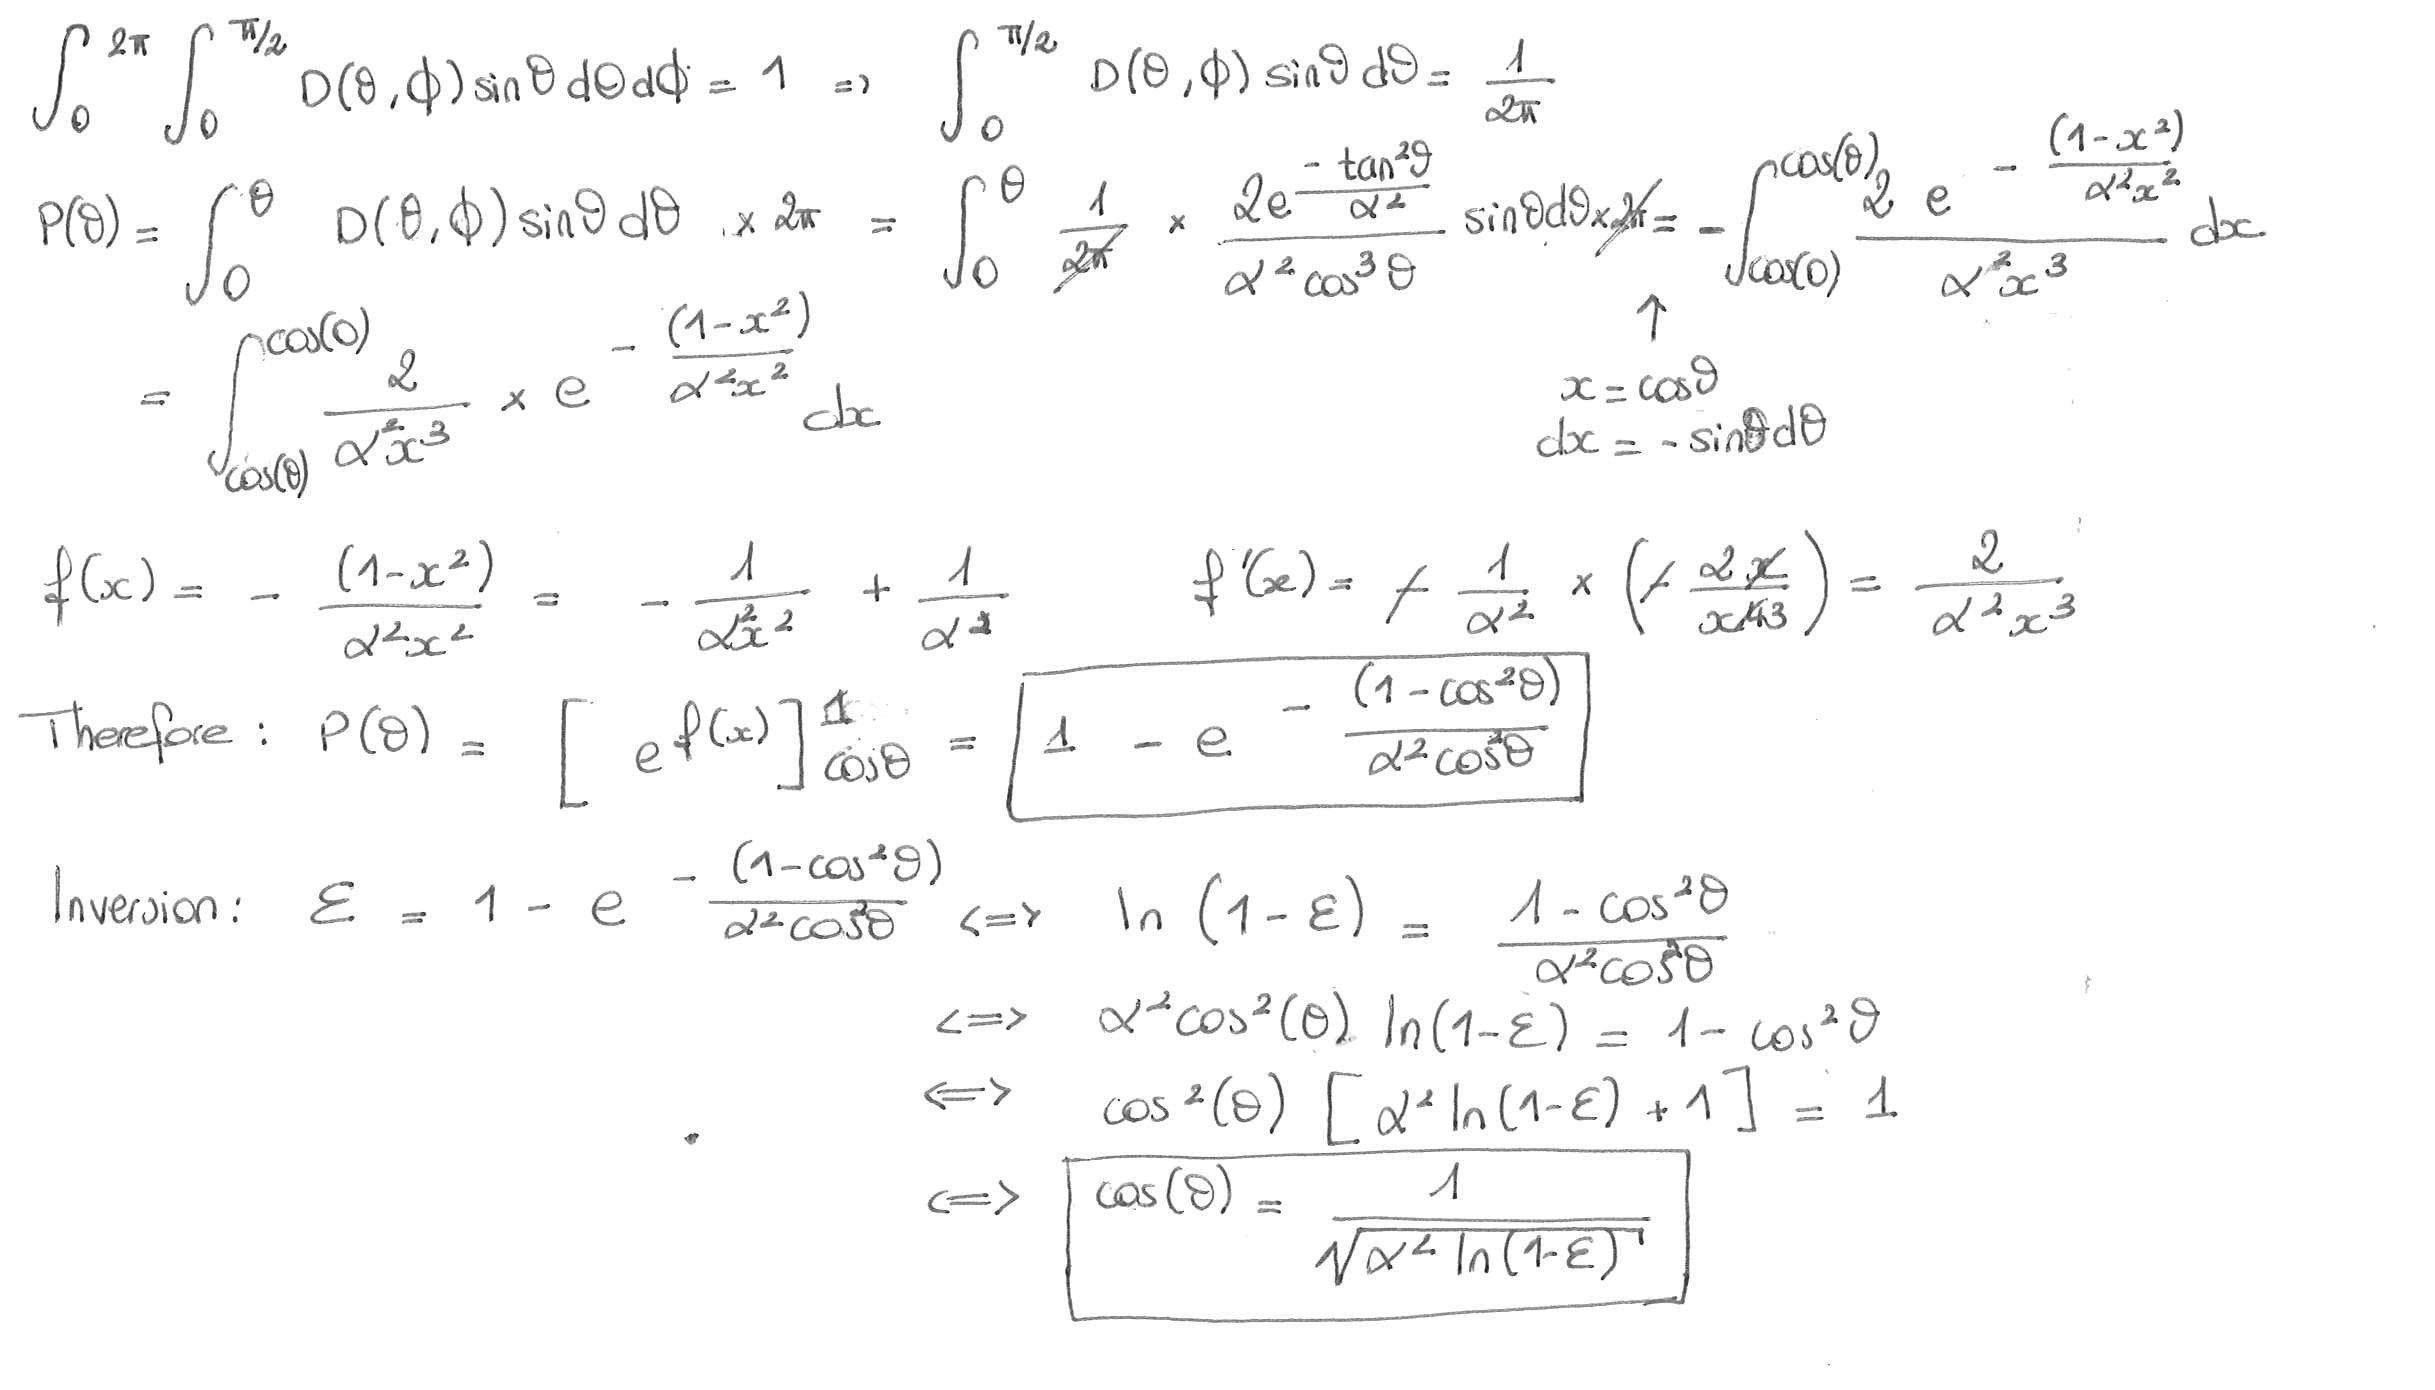 ∫₀^{2π} ∫₀^{π/2} D(θ,ϕ) sinθ dθ dϕ = 1 => ∫₀^{π/2} D(θ,ϕ) sinθ dθ = 1/2π
P(θ) = ∫₀^θ D(θ,ϕ) sinθ dθ × 2π = ∫₀^θ 1/2π × 2e^{-tan²θ/α²}/(α² cos³θ) sinθ dθ × 2π = -∫_{cos(0)}^{cos(θ)} 2e^{-(1-x²)/(α²x²)}/(α²x³) dx
↑
= ∫_{cos(θ)}^{cos(0)} 2/(α²x³) × e^{-(1-x²)/(α²x²)} dx
x = cosθ
dx = -sinθ dθ
f(x) = -(1-x²)/(α²x²) = -1/(α²x²) + 1/α² f'(x) = -1/α² × (-2x/x⁴3) = 2/(α²x³)
Therefore: P(θ) = [e^{f(x)}]_{cosθ}^{1} = 1 - e^{-(1-cos²θ)/(α²cos²θ)}
Inversion: ε = 1 - e^{-(1-cos²θ)/(α²cos²θ)} <=> ln(1-ε) = (1-cos²θ)/(α²cos²θ)
<=> α²cos²(θ) ln(1-ε) = 1-cos²θ
<=> cos²(θ) [α² ln(1-ε) + 1] = 1
<=> cos(θ) = 1/√(α² ln(1-ε))